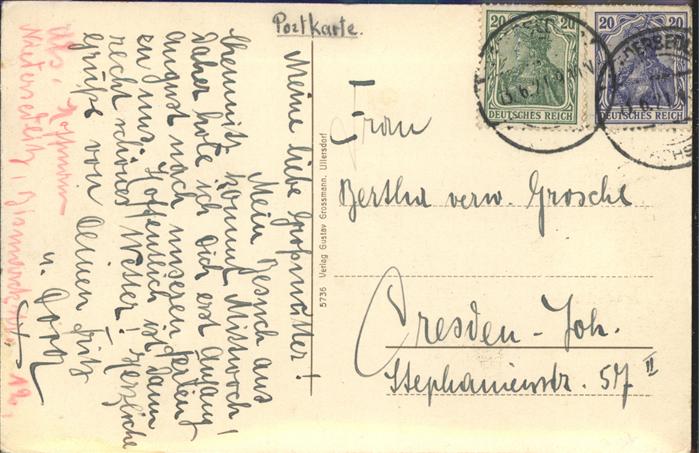 Postkarte.
Meine liebe Großmutter!
Mein Besuch aus
Chemnitz kommt Mittwoch!
Daher hole ich dich erst Anfang
August nach unseren Ferien
zu uns. Hoffentlich ist dann
recht schönes Wetter! Herzliche
Grüße von Deinen Fritz
u.
Abs. Hoffmann
Niedersedlitz, Bismarckstr. 12,
5736 Verlag Gustav Grossmann, Ullersdorf
20 20
DEUTSCHES REICH
20 20
DEUTSCHES REICH
13.6.21
Frau
Bertha verw. Grosche
Dresden-Joh.
Stephanienstr. 57 II